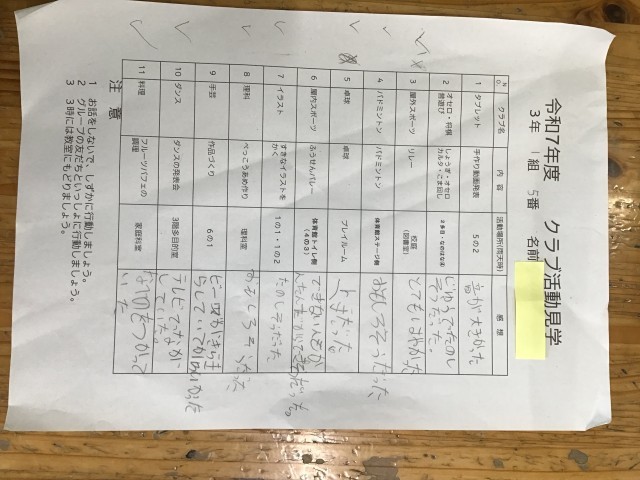 令和7年度 クラブ活動見学
3年 1組 5番 名前
No. クラブ名 内容 活動場所(雨天時) 感想
1 タブレット 手作り動画発表 5の2 音が大きかった
2 オセロ・将棋 昔遊び しょうぎ・オセロ カルタ・こま回し 2多目・なのはな2 じゆうでたのしそうだった。
3 屋外スポーツ リレー 校庭 (図書室) とてもはやかった
4 バドミントン バドミントン 体育館ステージ側 おもしろそうだった
5 卓球 卓球 プレイルーム
6 屋内スポーツ ふうせんバレー 体育館トイレ側 (4の3)
7 イラスト すきなイラストをかく 1の1・1の2 たのしそうだった
8 理科 べっこうあめ作り 理科室 おもしろそうだった
9 手芸 作品づくり 6の1
10 ダンス ダンスの発表会 3階多目的室
11 料理 フルーツパフェの調理 家庭科室
注意
1 お話をしないで、しずかに行動しましょう。
2 グループの友だちといっしょに行動しましょう。
3 時には教室にもどりましょう。